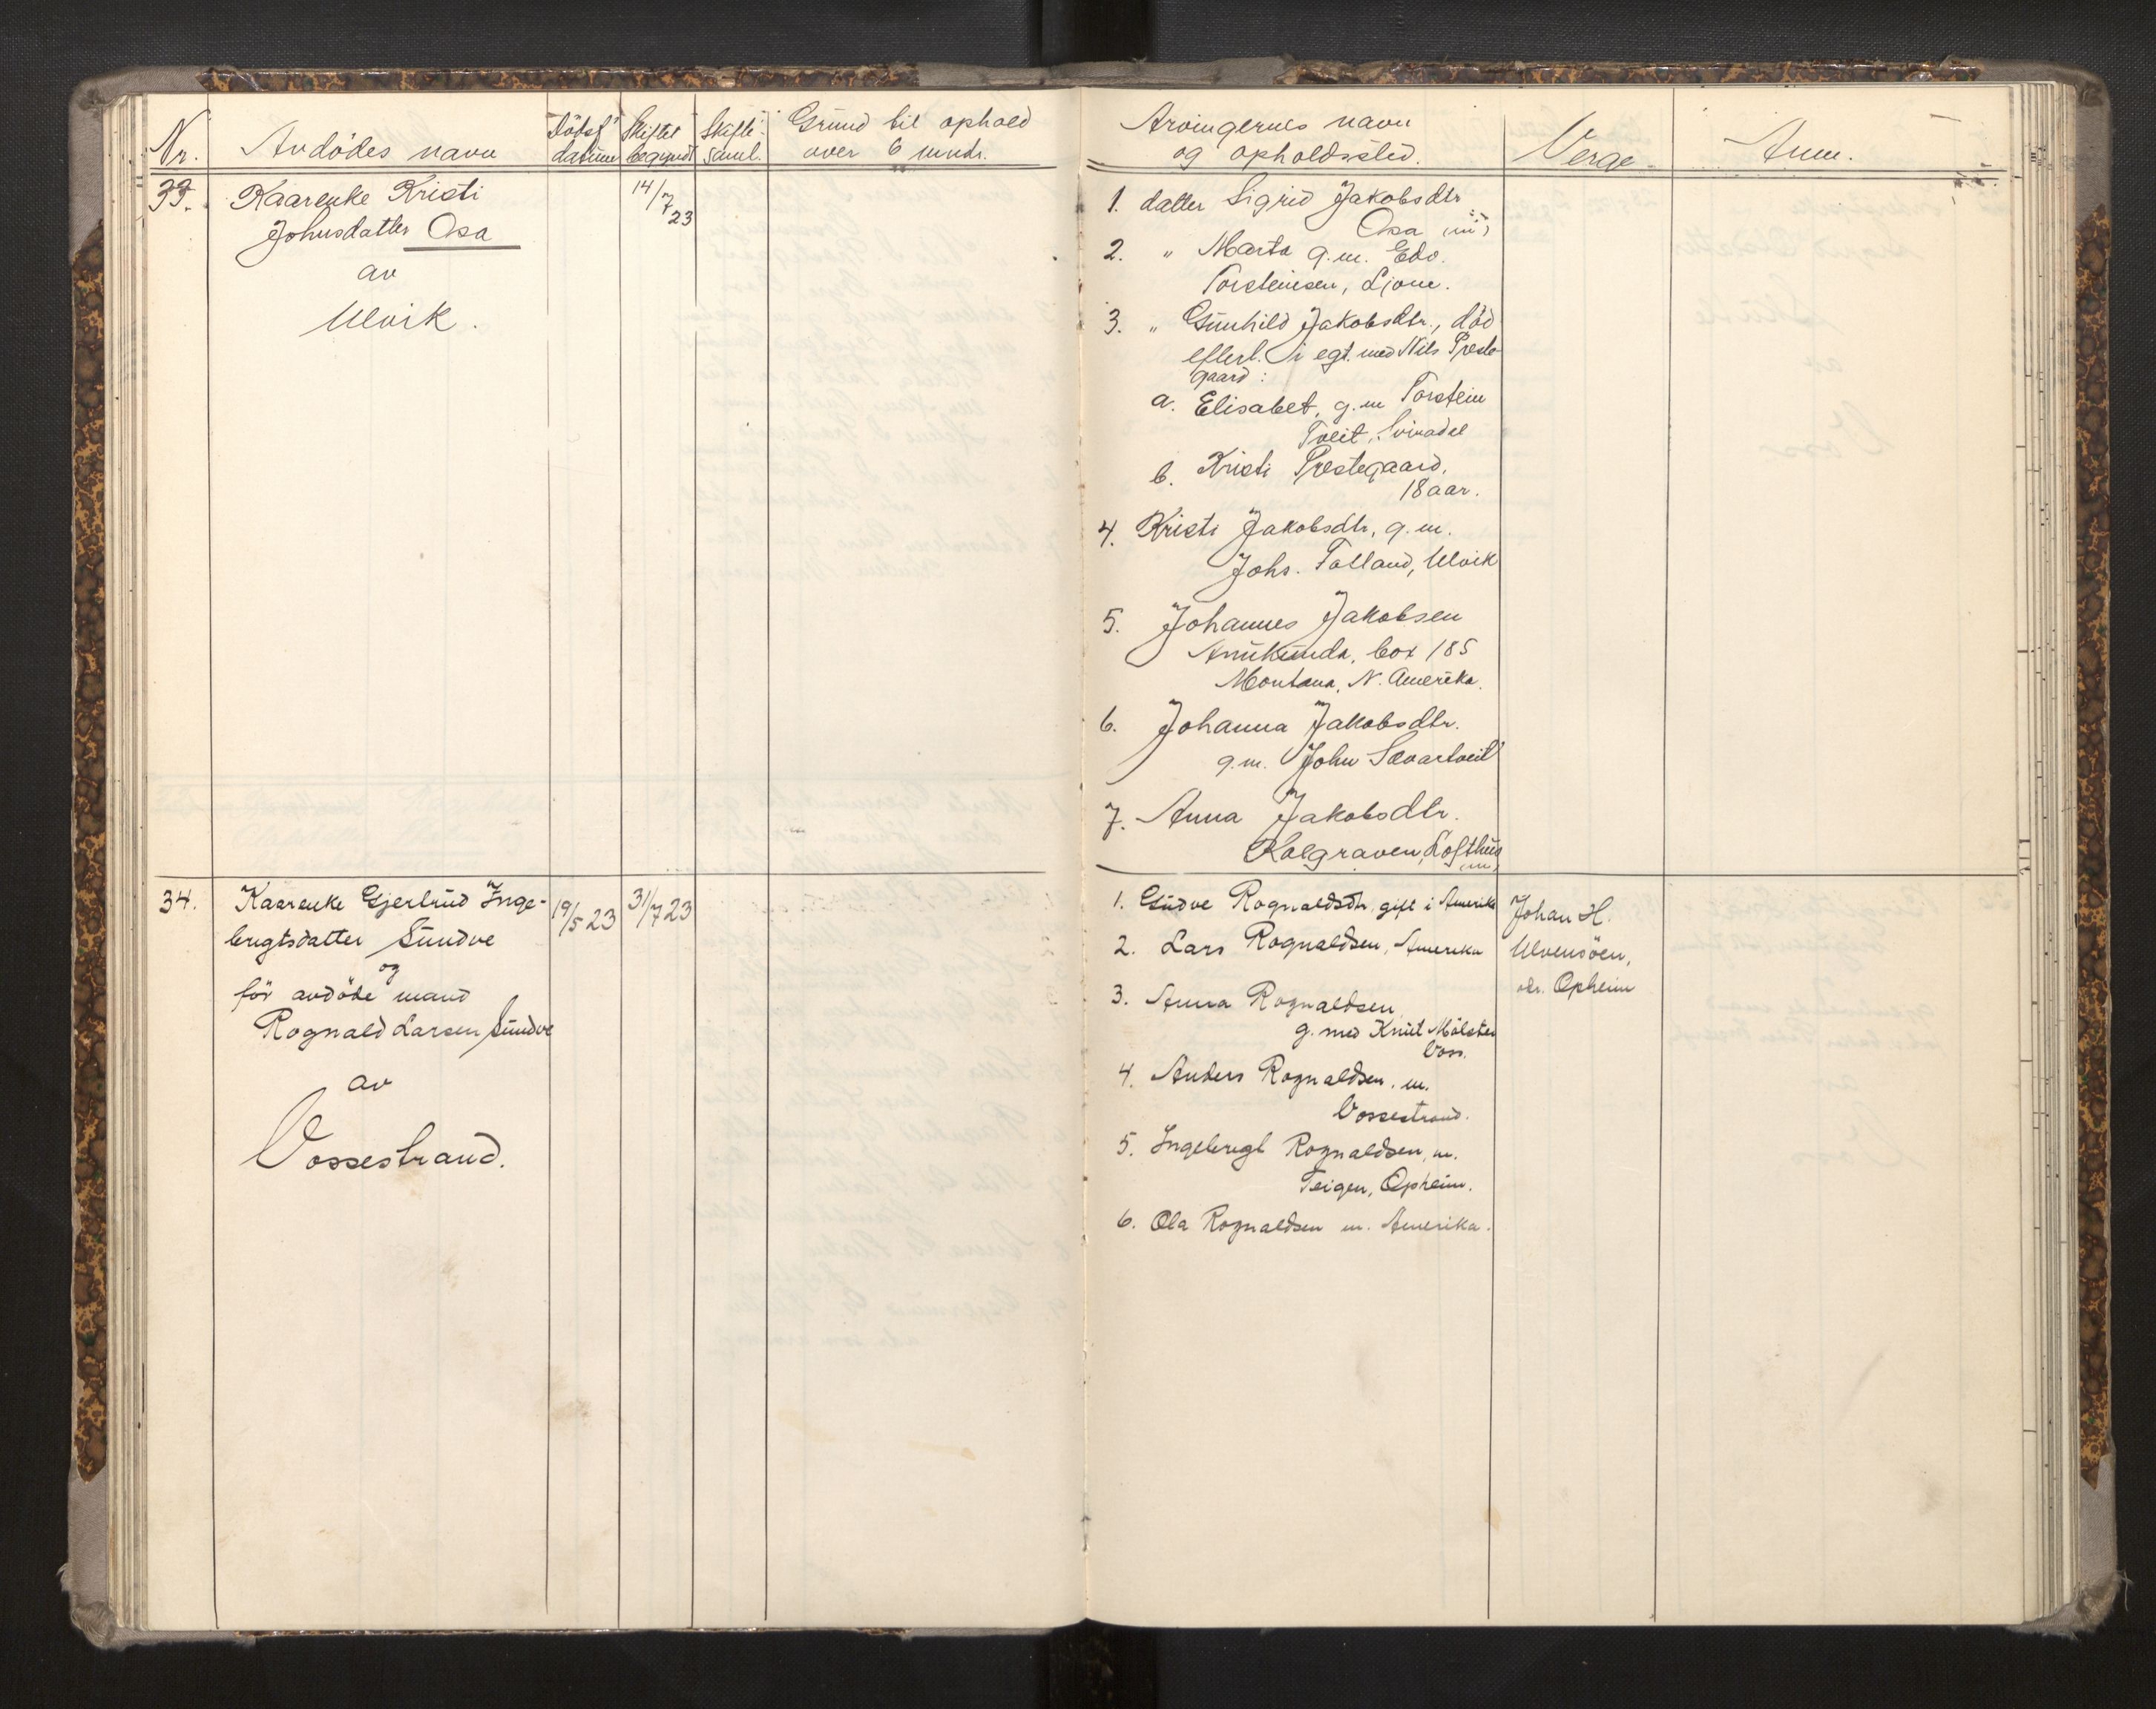 Nr.
Avdødes navn
Dödsf
datum
Skiftet
begyndt
Skifte
saml.
Grund til ophold
over 6 mndr.
Arvingernes navn
og opholdssted.
Verge
Anm.
33.
Kaarenke Kristi
Johnsdatter Osa
av
Ulvik.
14/7 23
1. datter Sigrid Jakobsdtr
Osa
2. " Marta g.m. Edv.
Torsteinsen, Ljone.
3. " Gunhild Jakobsdtr., död
efterl. i egt. med Nils Preste
gaard:
a. Elisabet, g.m Torstein
Tveit, Svinadal
b. Kristi Prestegaard,
18 aar.
4. Kristi Jakobsdtr, g.m.
Johs. Tolland, Ulvik
5. Johannes Jakobsen
box 185
Montana, N. Amerika.
6. Johanna Jakobsdtr.
g.m. John Sævartveit
7. Anna Jakobsdtr.
Kolgraven, Lofthus
34.
Kaarenke Gjertrud Inge-
brigtsdatter Sundve
og
før avdøde mand
Rognald Larsen Sundve
av
Vossestrand.
19/5 23
31/7 23
1. Gudve Rognaldsdtr. gift i Amerika
2. Lars Rognaldsen, Amerika
3. Anna Rognaldsen
g. med Knut Mölster
Voss.
4. Anders Rognaldsen. m.
Vossestrand.
5. Ingebrigt Rognaldsen, m.
Teigen, Opheim.
6. Ola Rognaldsen m. Amerika.
Johan H.
Ulvensöen,
adr. Opheim